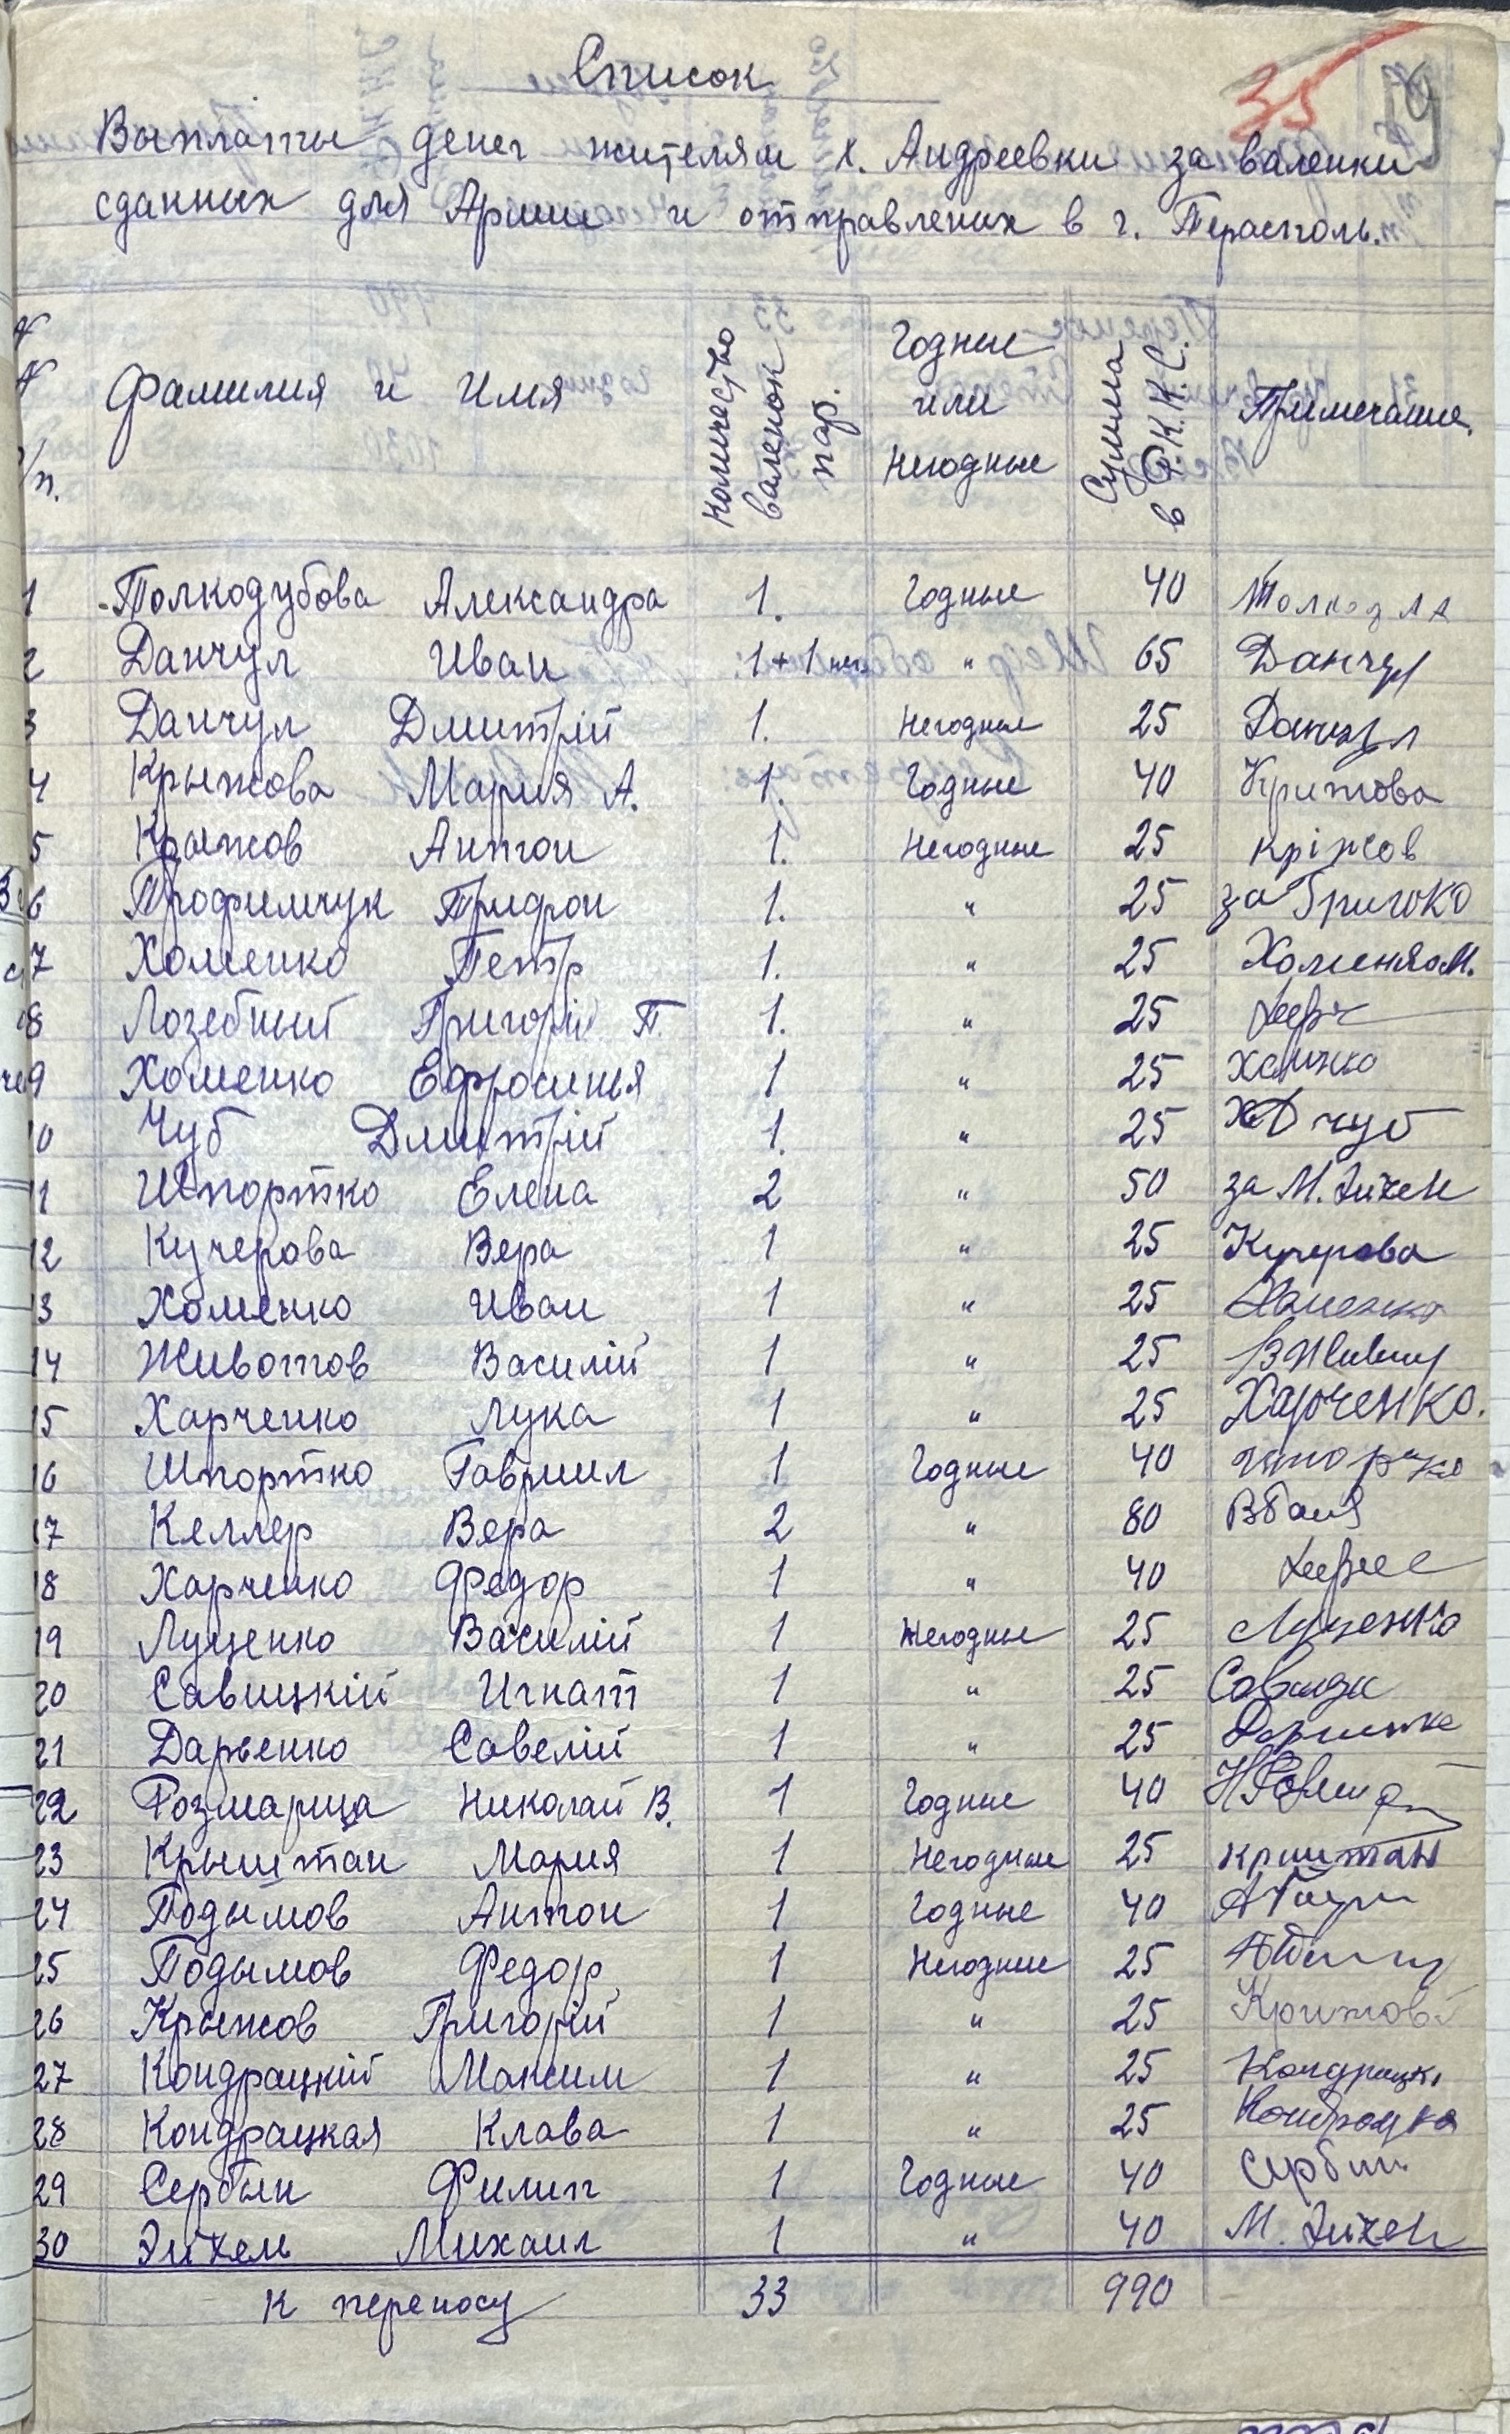 35
79
Список
Выплаты денег жителям х. Андреевки за валенки
сданных для Армии и отправлених в г. Тирасполь.
№ № п/п. Фамилия и Имя количество валенок пар. Годные или Негодные Сумма в Р.К.К.С. Примечание.
1 Толкодубова Александра 1. Годные 40
2 Данчул Иван 1+1 нег. " 65 Данчул
3 Данчул Дмитрій 1. Негодные 25 Данчул
4 Крыжова Мария А. 1. Годные 40 Крижова
5 Крыжов Антон 1. Негодные 25 Кріжов
6 Трофимчук Трифон 1. " 25 за
7 Хоменко Петр 1. " 25
8 Лозебный Григорій П. 1. " 25
9 Хоменко Ефросинья 1 " 25
10 Чуб Дмитрій 1. " 25 Чуб
11 Шпортко Елена 2 " 50 за М. Эйхел
12 Кучерова Вера 1 " 25 Кучерова
13 Хоменко Иван 1 " 25 Хоменко
14 Животов Василій 1 " 25
15 Харченко Лука 1 " 25 Харченко.
16 Шпортко Гавриил 1 Годные 40
17 Келлер Вера 2 " 80
18 Харченко Федор 1 " 40
19 Луценко Василій 1 Негодные 25 Луценко
20 Савицкій Игнат 1 " 25
21 Дарьенко Савелій 1 " 25
22 Розмарица Николай В. 1 Годные 40
23 Крыштан Мария 1 Негодные 25 криштан
24 Подымов Антон 1 Годные 40
25 Подымов Федор 1 Негодные 25
26 Крыжов Григорій 1 " 25
27 Кондрацкій Максим 1 " 25
28 Кондрацкая Клава 1 " 25
29 Сербин Филип 1 Годные 40 Сербин
30 Эйхель Михаил 1 " 40 М. Эйхел
К переносу 33 990